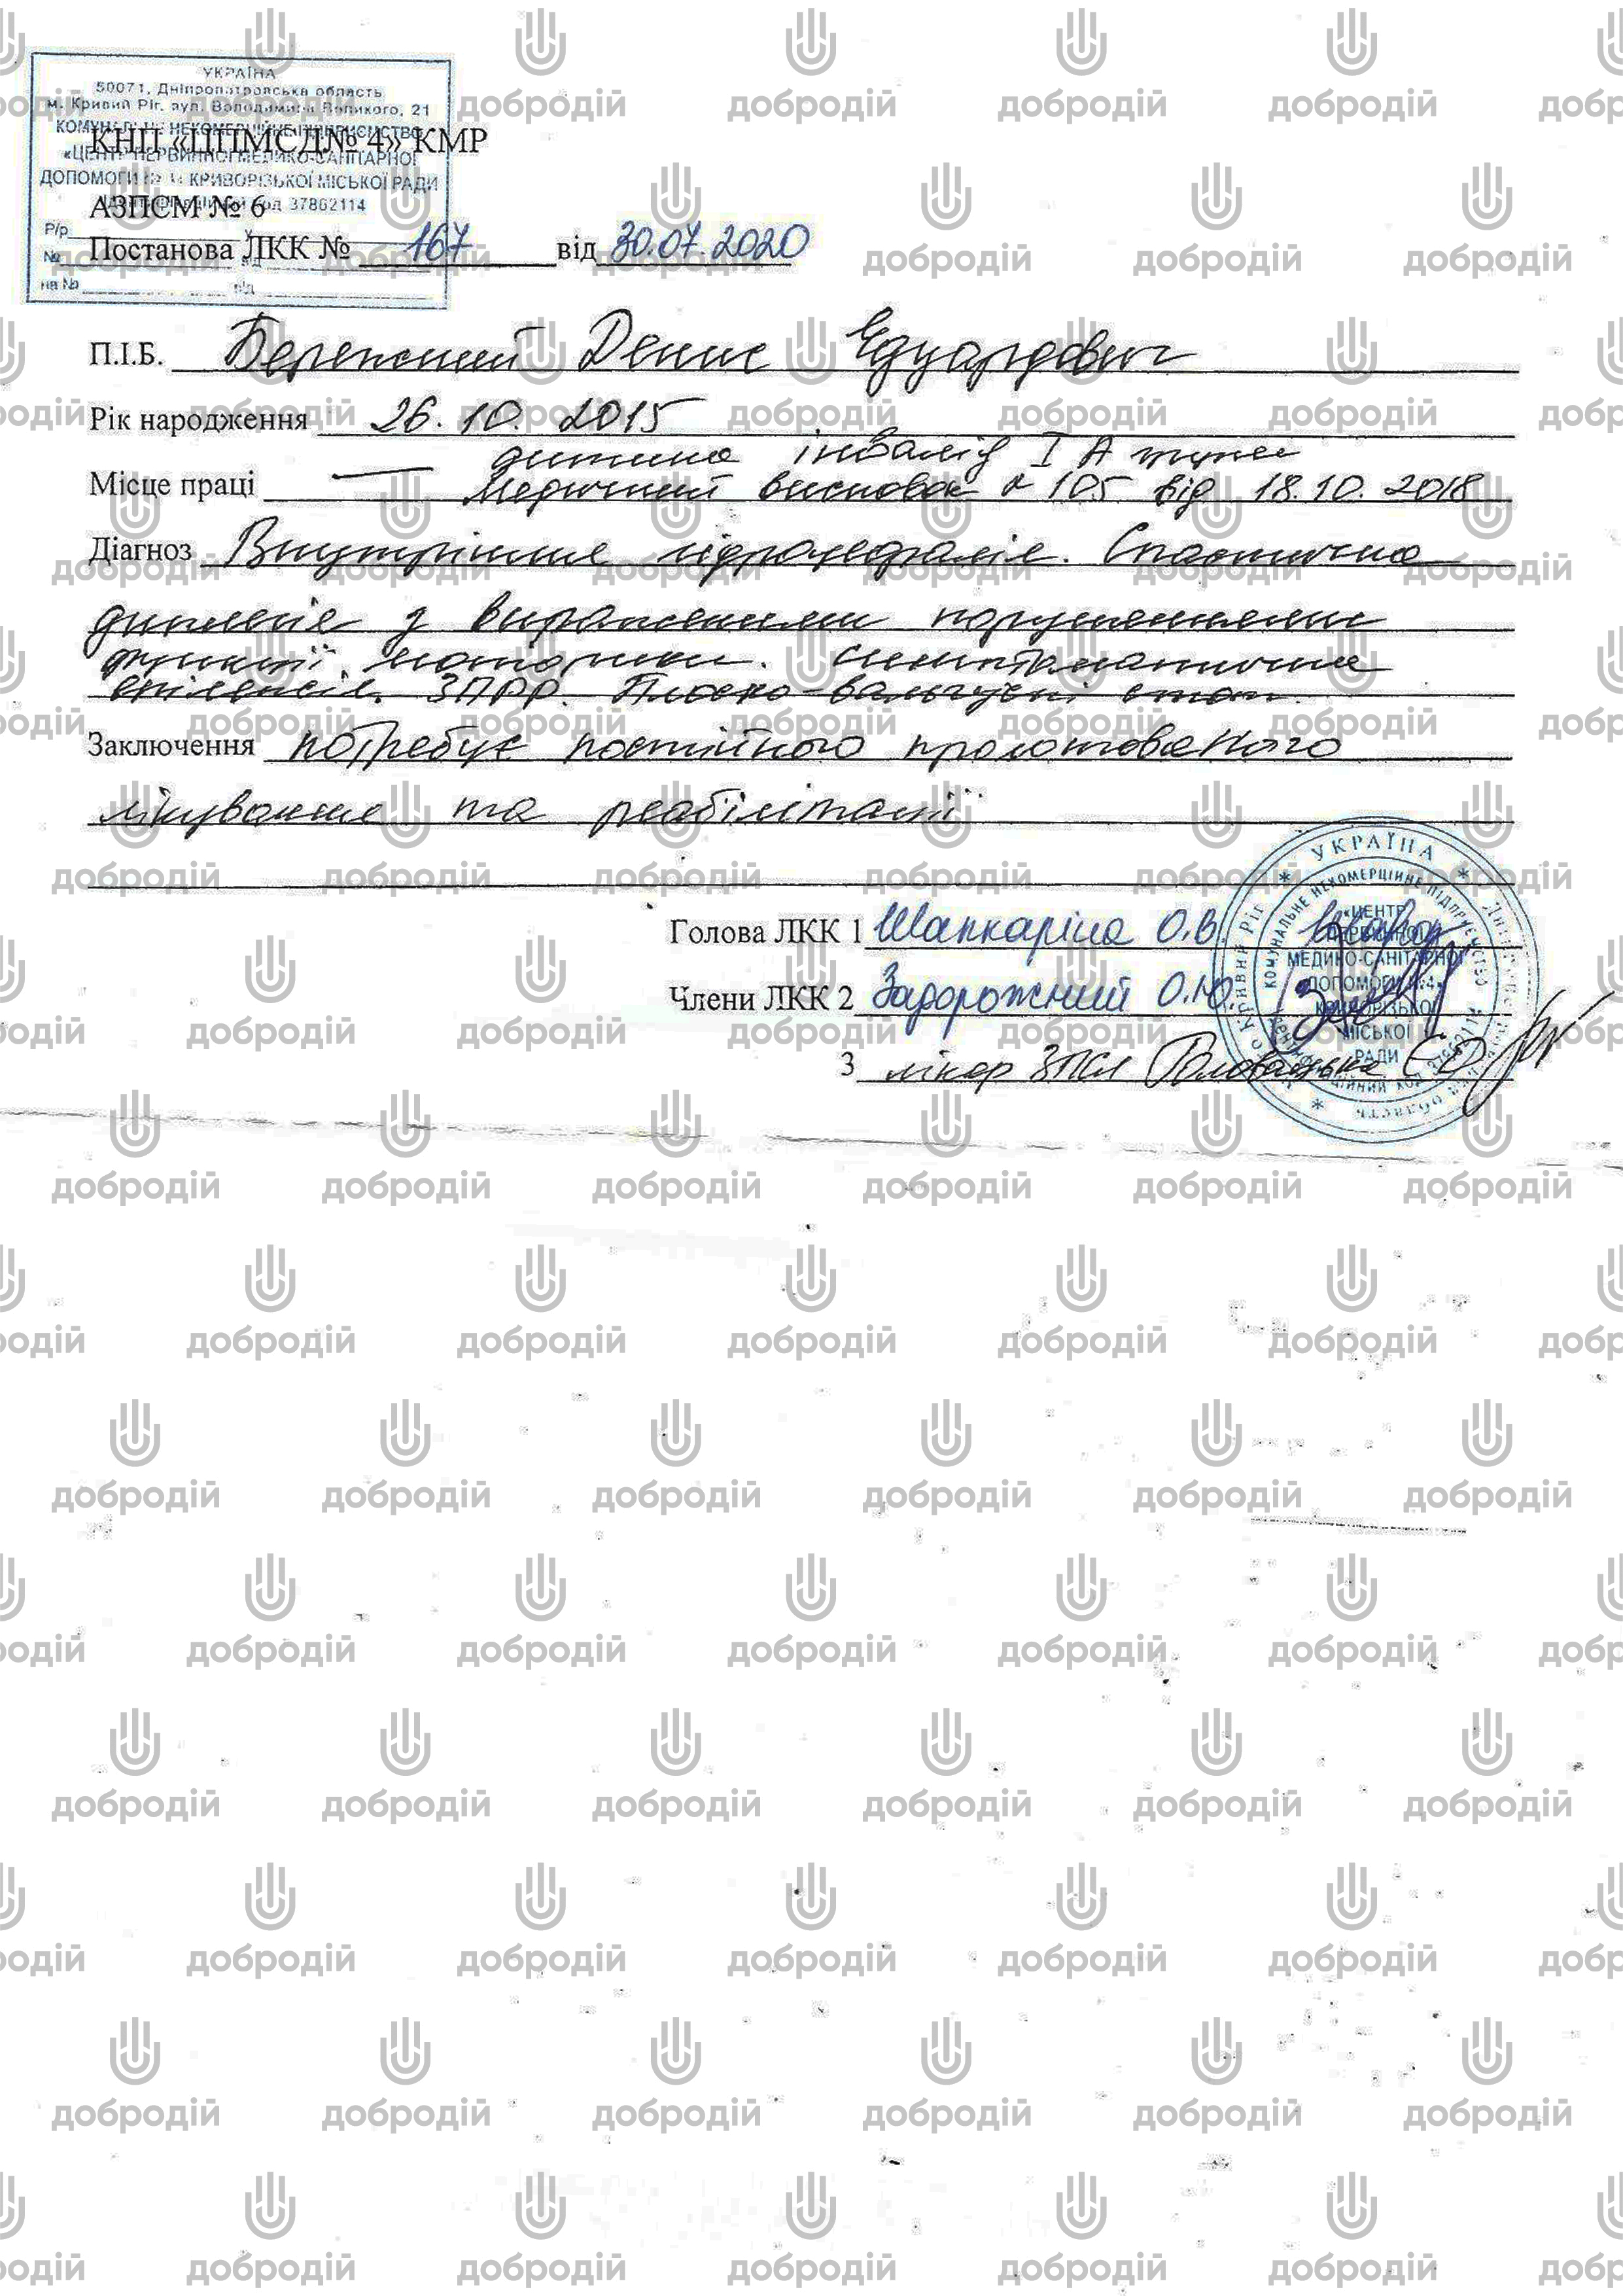 УКРАЇНА
50071, Дніпропетровська область
м. Кривий Ріг, вул. Володимира Великого, 21
КОМУНАЛЬНЕ НЕКОМЕРЦІЙНЕ ПІДПРИЄМСТВО
КНП «ЦПМСД№ 4» КМР
«ЦЕНТР ПЕРВИННОЇ МЕДИКО-САНІТАРНОЇ
ДОПОМОГИ № 4» КРИВОРІЗЬКОЇ МІСЬКОЇ РАДИ
Ідентифікаційний код 37862114
АЗПСМ № 6
Р/р
Постанова ЛКК № 167 від 30.07.2020
№ від
на № від
П.І.Б. Денис Едуардович
Рік народження 26.10.2015
дитина інвалід І А групи
Місце праці — Медичний висновок № 105 від 18.10.2018
Діагноз Внутрішня гідроцефалія. Спастична
диплегія з вираженими порушеннями
функції моторики. симптоматична
епілепсія. ЗПРР. Плоско-вальгусні стоп.
Заключення потребує постійного пролонгованого
лікування та реабілітації
Голова ЛКК 1 Шапкаріна О.В.
Члени ЛКК 2 Задорожний О.Ю.
3 лікар ЗПСЛ
УКРАЇНА
КОМУНАЛЬНЕ НЕКОМЕРЦІЙНЕ ПІДПРИЄМСТВО
«ЦЕНТР
ПЕРВИННОЇ
МЕДИКО-САНІТАРНОЇ
ДОПОМОГИ №4»
КРИВОРІЗЬКОЇ
МІСЬКОЇ
РАДИ
добродій